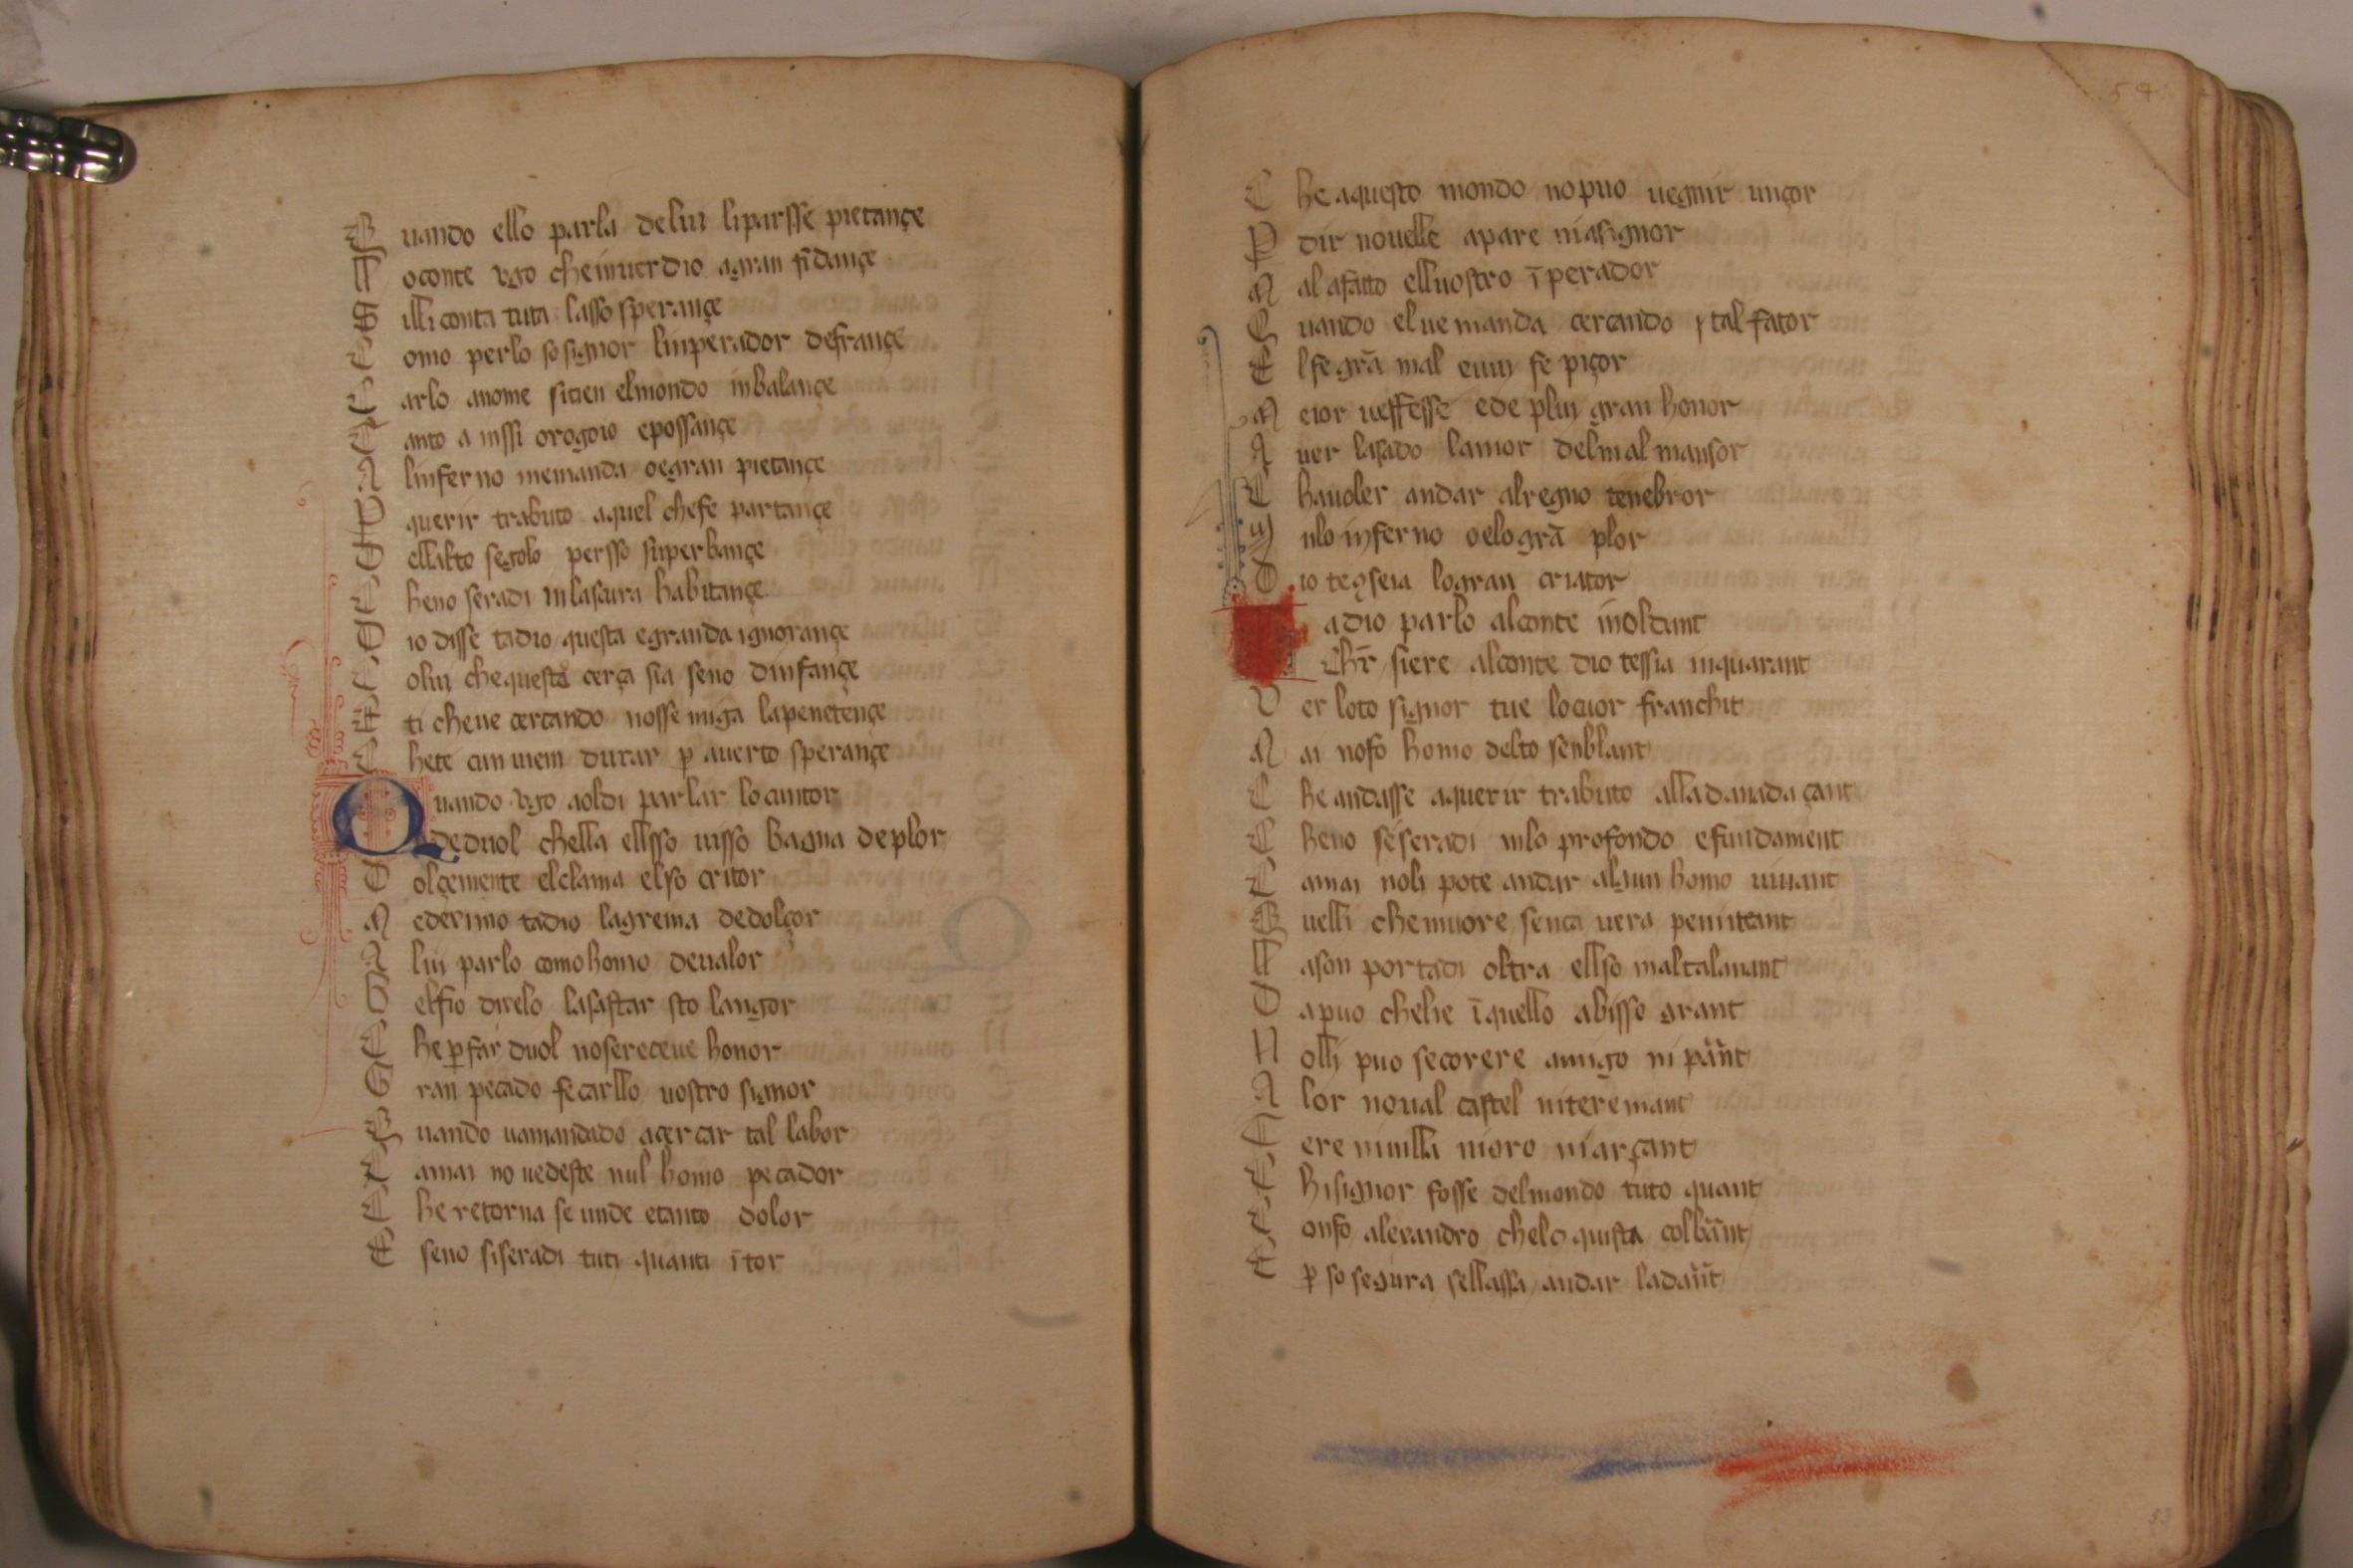 Q uando ello parla delui liparsse pietançe
L o conte vgo cheinuerdio agran fidançe
S illi conta tuta lasso sperançe
C omo perlo so signor linperador defrançe
C arlo anome sitien elmondo inbalançe
T anto a inssi orogoio epossançe
A linferno memanda oegran pietançe
P querir trabuto aquel chefe partançe
D ellalto segolo persso superbançe
C heno seradi inlascura habitançe
D io disse tadio questa egranda ignorançe
C olui chequesta cerça sia seno dinfançe
E ti cheue cercando nosse miga lapenetençe
C hete conuien durar p auerto sperançe
Q uando vgo aoldi parlar lo contor
deduol chella ellsso uisso bagna deplor
D olçemente elclama elso critor
M ederimo tadio lagrema dedolçor
A lui parlo comohomo deualor
B elfio direlo lasastar sto langor
C he pfar duol nosereceue honor
G ran pecado fecarllo uostro signor
Q uando uamandado acercar tal labor
C amai no uedeste nul homo pecador
C he retorna se unde etanto dolor
E seno siseradi tuti quanti ītor
54
C he aquesto mondo nopuo uegnir unçor
P dir nouelle apare niasignor
M al afatto elluostro īperador
Q uando elue manda cercando ptal fator
E lfe grā mal euui fe piçor
M eior ueffesse ede plui gran honor
A uer lasado lamor delmal mansor
C hauoler andar alregno tenebror
I nlo inferno oelo grā plor
D io teçseia logran criator
T adio parlo alconte inoldant
Chr̄ siere alconte dio tessia inquarant
V er loto signor tue locuor franchit
M ai nofo homo delto senblant
C he andasse aquerir trabuto alladanada çant
C heno seseradi inlo profondo efundament
C amai noli pote andar algun homo uiuant
Q uelli chemuore sença uera penitant
L ason portadi oltra ellso maltalanant
D apuo chelie īquello abisso grant
N olli puo secorere amigo ni pār̄nt
A lor noual castel niteremant
T ere niuilla nioro niarçant
C hisignor fosse delmondo tuto quant
C onfo alexandro chelo quista colbrānt
E p so segura sellassa andar ladān̄t
53